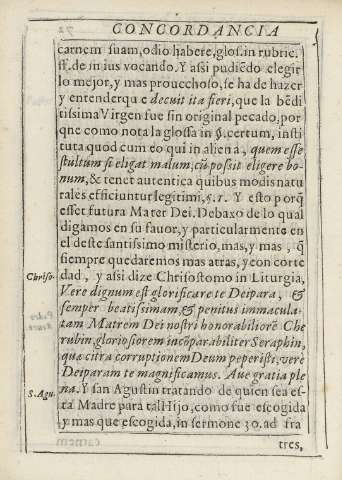 CONCORDANCIA
carnem suam, odio habere, glos. in rubric.
ff. de in ius vocando. Y assi pudiẽdo elegir
lo mejor, y mas prouechoso, se ha de hazer
y entenderqu e decuit ita fieri, que la bẽdi
tissima Virgen fue sin original pecado, por
que como nota la glossa in §. certum, insti
tuta quod cum eo qui in aliena, quem esse
stultum si eligat malum, cũ possit eligere bo-
num, & tenet autentica quibus modis natu
rales efficiuntur legitimi, §. 1. Y esto porq̃
esset futura Mater Dei. Debaxo de lo qual
digamos en su fauor, y particularmente en
el deste santissimo misterio, mas, y mas, q̃
siempre quedaremos mas atras, y con corte
Chriso-
dad, y assi dize Chrisostomo in Liturgia,
Vere dignum est glorificare te Deipara, &
semper beatissimam, & penitus immacula-
tam Matrem Dei nostri honorabiliorẽ Che
rubin, gloriosiorem incõparabiliter Seraphin,
quæ citra corruptionem Deum peperisti, vere
Deiparam te magnificamus. Aue gratia ple
S. Agu.
na. Y san Agustin tratando de quien sea es-
ta Madre para tal Hijo, como fue escogida
y mas que escogida, in sermone 30. ad fra
tres,